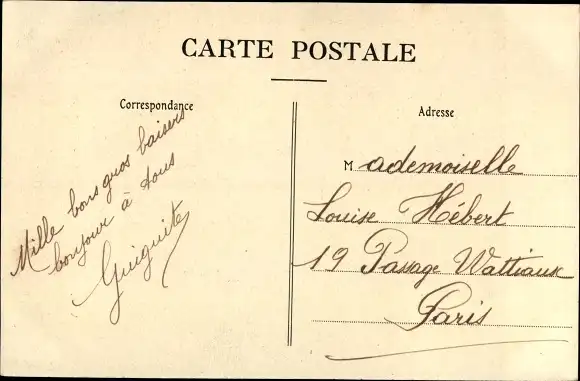 CARTE POSTALE
Correspondance
Mille bons gros baisers
bonjour à tous
Guiguite
Adresse
Mademoiselle
Louise Hébert
19 Passage Wattiaux
Paris